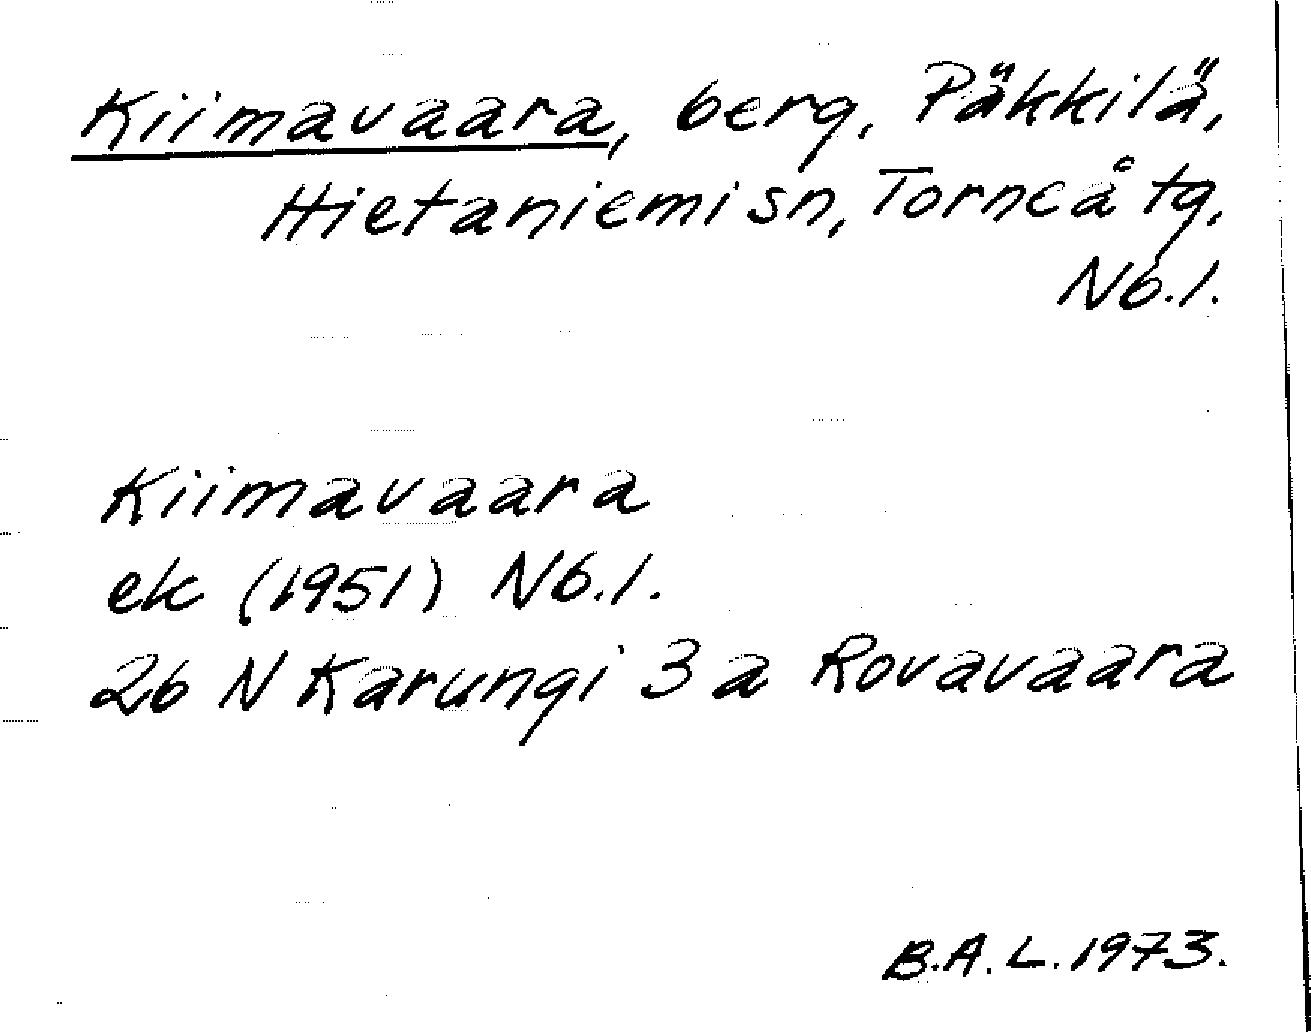 Kiimavaara, berg, Päkkilä,
Hietaniemi sn, Torneå tg,
Nb.l.
Kiimavaara
ek (1951) Nb.l.
26 N Karungi 3 a Rovavaara
B.A.L. 1973.